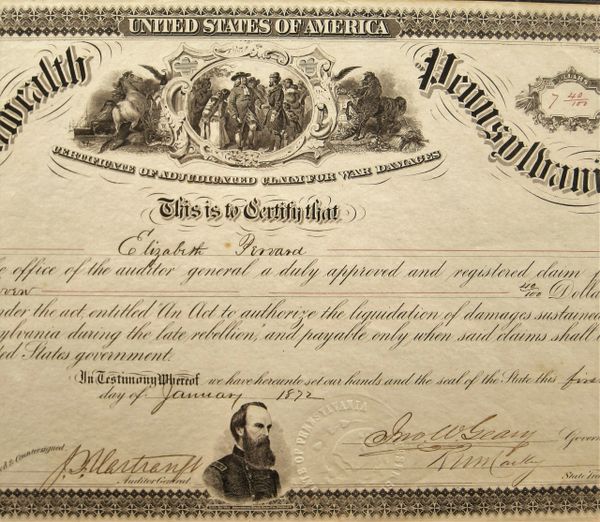 UNITED STATES OF AMERICA
wealth OF Pennsylvani
DOLLARS
7 40/100
CERTIFICATE OF ADJUDICATED CLAIM FOR WAR DAMAGES
This is to Certify that
Elizabeth
e office of the auditor general a duly approved and registered claim f
even 40/100 Dolla
under the act, entitled "An Act to authorize the liquidation of damages sustained
sylvania during the late rebellion," and payable only when said claims shall
ted States government.
In Testimony Whereof we have hereunto set our hands and the seal of the State this first
day of January 1872
Countersigned
J. F. Hartranft
Auditor General
OF PENNSYLVANIA
Jno W Geary Govern
State Tre